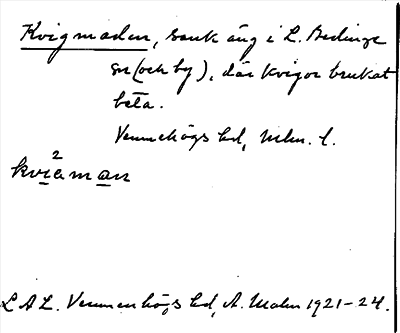 Kvigmaden, sank äng i L. Bedinge
sn (och by), där kvigor brukat
beta.
Vemmehögs hd, Mlm. l.
kvi²aman
L A L. Vemmenhögs hd, A. Malm 1921-24.